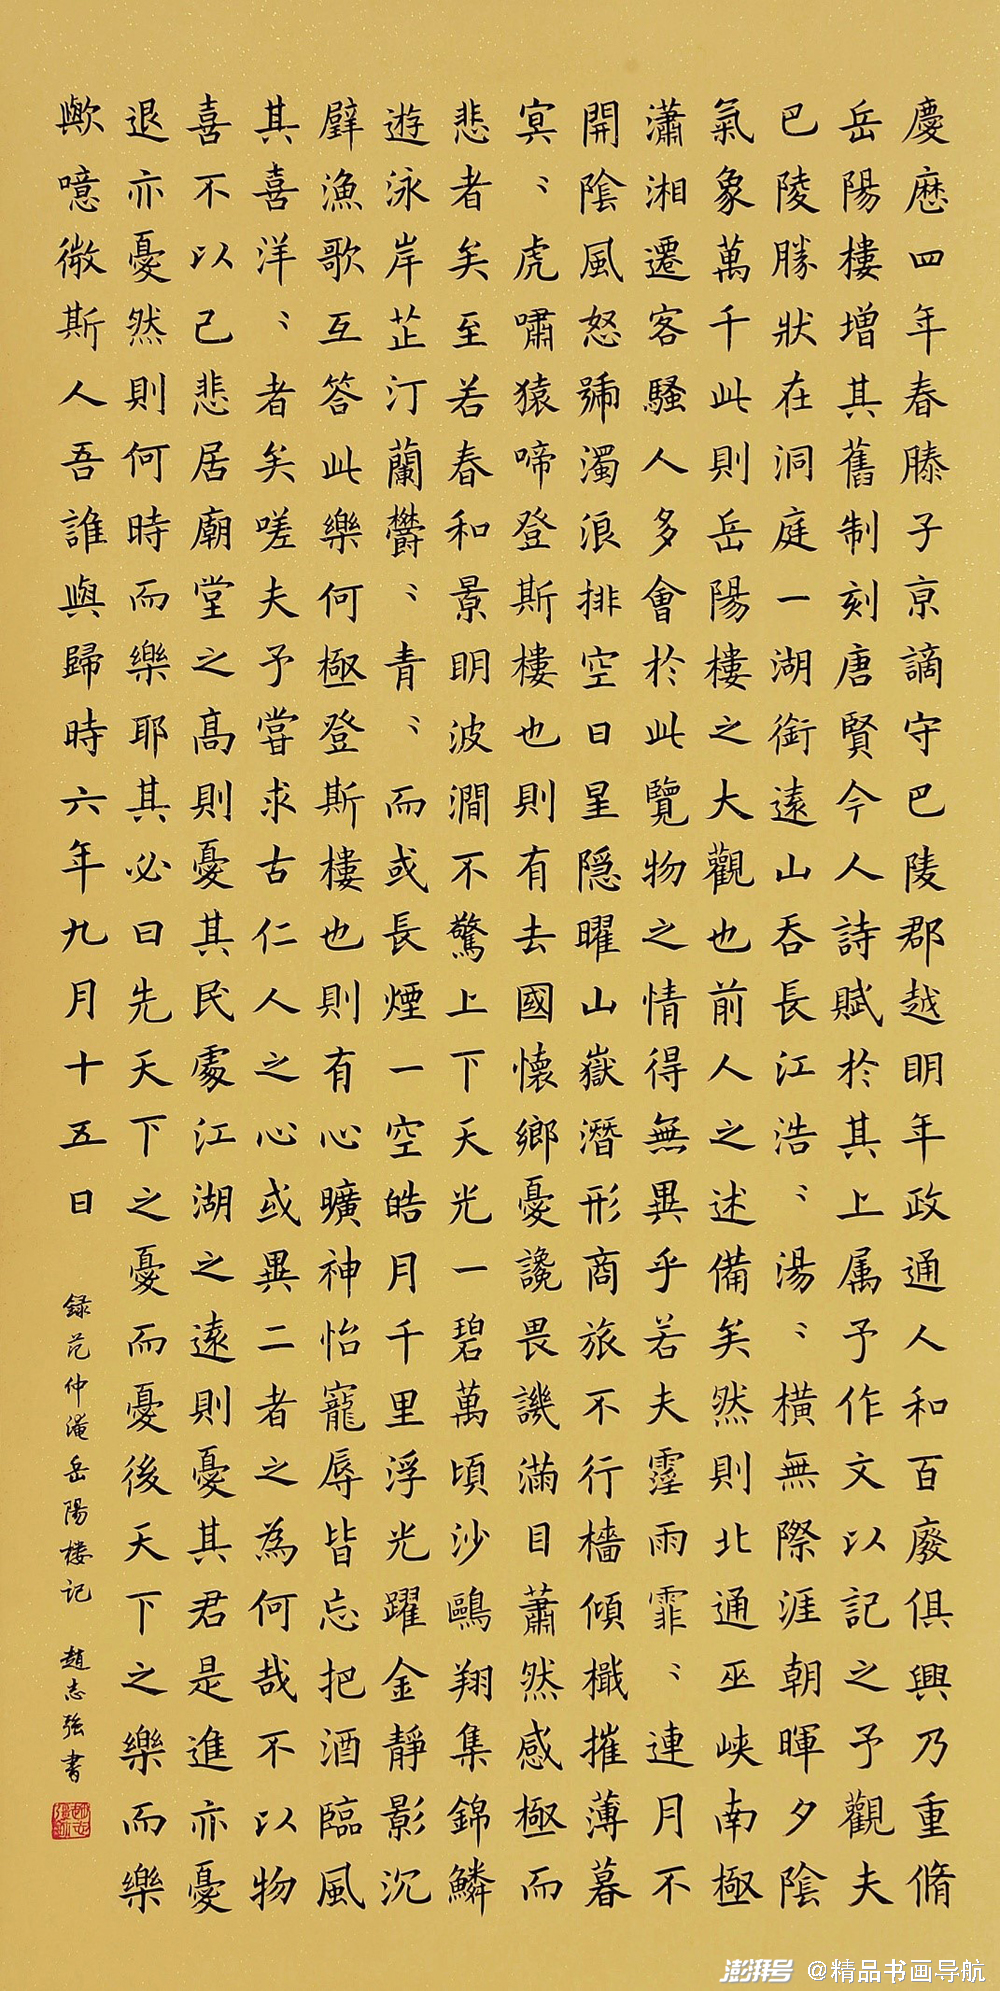 慶歷四年春滕子京謫守巴陵郡越明年政通人和百廢俱興乃重脩
岳陽樓增其舊制刻唐賢今人詩賦於其上属予作文以記之予觀夫
巴陵勝狀在洞庭一湖銜遠山吞長江浩〻湯〻橫無際涯朝暉夕陰
氣象萬千此則岳陽樓之大觀也前人之述備矣然則北通巫峽南極
瀟湘遷客騷人多會於此覽物之情得無異乎若夫霪雨霏〻連月不
開陰風怒號濁浪排空日星隱曜山嶽潛形商旅不行檣傾檝摧薄暮
冥〻虎嘯猿啼登斯樓也則有去國懷鄉憂讒畏譏滿目蕭然感極而
悲者矣至若春和景明波澗不驚上下天光一碧萬頃沙鷗翔集錦鱗
遊泳岸芷汀蘭鬱〻青〻而或長煙一空皓月千里浮光躍金靜影沉
璧漁歌互答此樂何極登斯樓也則有心曠神怡寵辱皆忘把酒臨風
其喜洋〻者矣嗟夫予嘗求古仁人之心或異二者之為何哉不以物
喜不以己悲居廟堂之高則憂其民處江湖之遠則憂其君是進亦憂
退亦憂然則何時而樂耶其必曰先天下之憂而憂後天下之樂而樂
歟噫微斯人吾誰與歸時六年九月十五日 録范仲淹岳陽楼记 趙志強書
澎湃号 @精品书画导航